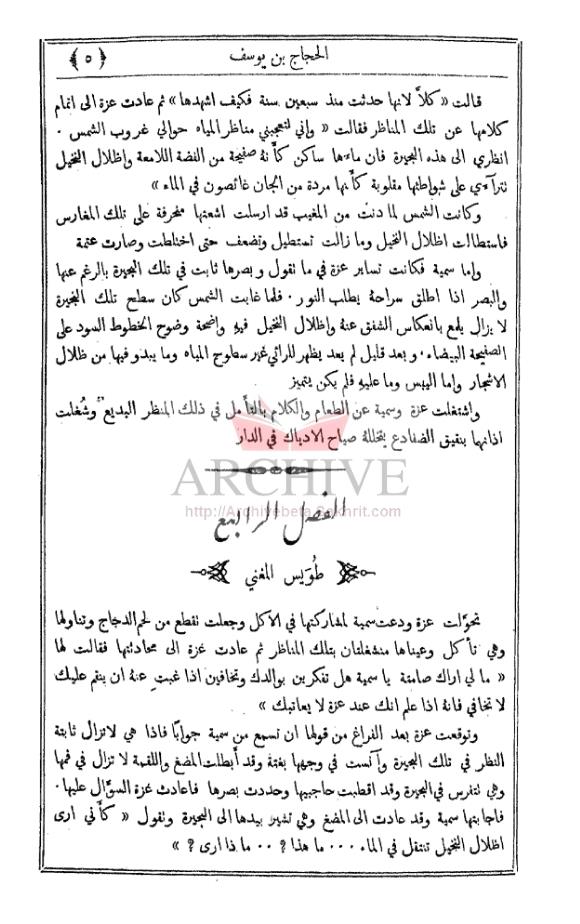 الحجاج بن يوسف
﴿ ٥ ﴾
قالت « كلاَّ لانها حدثت منذ سبعين سنة فكيف اشهدها » ثم عادت عزة الى اتمام
كلامها عن تلك المناظر فقالت « واني لتعجبني مناظر المياه حوالي غروب الشمس .
انظري الى هذه البحيرة فان ماءها ساكن كأنهُ صفيحة من الفضة اللامعة واظلال النخيل
تتراءى على شواطئها مقلوبة كأنها مردة من الجان غائصون في الماء »
وكانت الشمس لما دنت من المغيب قد ارسلت اشعتها منحرفة على تلك المغارس
فاستطالت اظلال النخيل وما زالت تستطيل وتضعف حتى اختلطت وصارت عتمة
واما سمية فكانت تساير عزة في ما نقول وبصرها ثابت في تلك البحيرة بالرغم عنها
والبصر اذا اطلق سراحهُ يطلب النور . فلما غابت الشمس كان سطح تلك البحيرة
لا يزال يلمع بانعكاس الشفق عنهُ واظلال النخيل فيهِ واضحة وضوح الخطوط السود على
الصفيحة البيضاء . وبعد قليل لم يعد يظهر للرائي غير سطوح المياه وما يبدو فيها من ظلال
الاشجار واما اليبس وما عليهِ فلم يكن يتميز
واشتغلت عزة وسمية عن الطعام والكلام بالتأمل في ذلك المنظر البديع وشُغلت
اذانها بنقيق الضفادع يتخللهُ صياح الادياك في الدار
ARCHIVE
http://Archivebeta.Sakhrit.com
الفصل الرابع
طُوَيس المغني
تحوَّلت عزة ودعت سمية لمشاركتها في الاكل وجعلت نقطع من لحم الدجاج وتناولها
وهي تأكل وعيناها منشغلتان بتلك المناظر ثم عادت عزة الى محادثتها فقالت لها
« ما لي اراك صامتة يا سمية هل تفكرين بوالدك وتخافين اذا غبتِ عنهُ ان ينقم عليك
لا تخافي فانهُ اذا علم انك عند عزة لا يعاتبك »
وتوقعت عزة بعد الفراغ من قولها ان تسمع من سمية جوابًا فاذا هي لاتزال ثابتة
النظر في تلك البحيرة وآنست في وجهها بغتة وقد أبطلت المضغ واللقمة لا تزال في فمها
وهي لتفرس في البحيرة وقد اقطبت حاجبيها وحددت بصرها فاعادت عزة السؤال عليها .
فاجابتها سمية وقد عادت الى المضغ وهي تشير بيدها الى البحيرة ونقول « كأني ارى
اظلال النخيل تنتقل في الماء ... ما هذا ؟ .. ما ذا ارى ؟ »